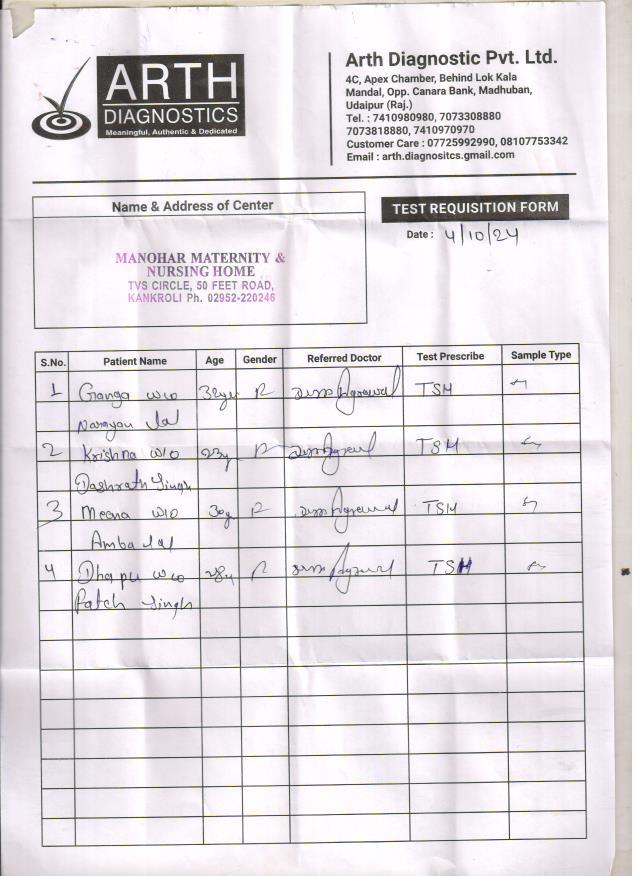 ARTH
DIAGNOSTICS
Meaningful, Authentic & Dedicated
Arth Diagnostic Pvt. Ltd.
4C, Apex Chamber, Behind Lok Kala
Mandal, Opp. Canara Bank, Madhuban,
Udaipur (Raj.)
Tel. : 7410980980, 7073308880
7073818880, 7410970970
Customer Care : 07725992990, 08107753342
Email : arth.diagnositcs.gmail.com
Name & Address of Center
TEST REQUISITION FORM
Date : 4/10/24
MANOHAR MATERNITY &
NURSING HOME
TVS CIRCLE, 50 FEET ROAD,
KANKROLI Ph. 02952-220246
S.No. Patient Name Age Gender Referred Doctor Test Prescribe Sample Type
1 Ganga w/o 32yr Agrawal TSH
Narayan lal
2 Krishna w/o 23y Agrawal TSH
Dashrath Singh
3 Meena w/o 30y Agrawal TSH
Amba lal
4 Dhapu w/o 28y Agrawal TSH
Fateh Singh